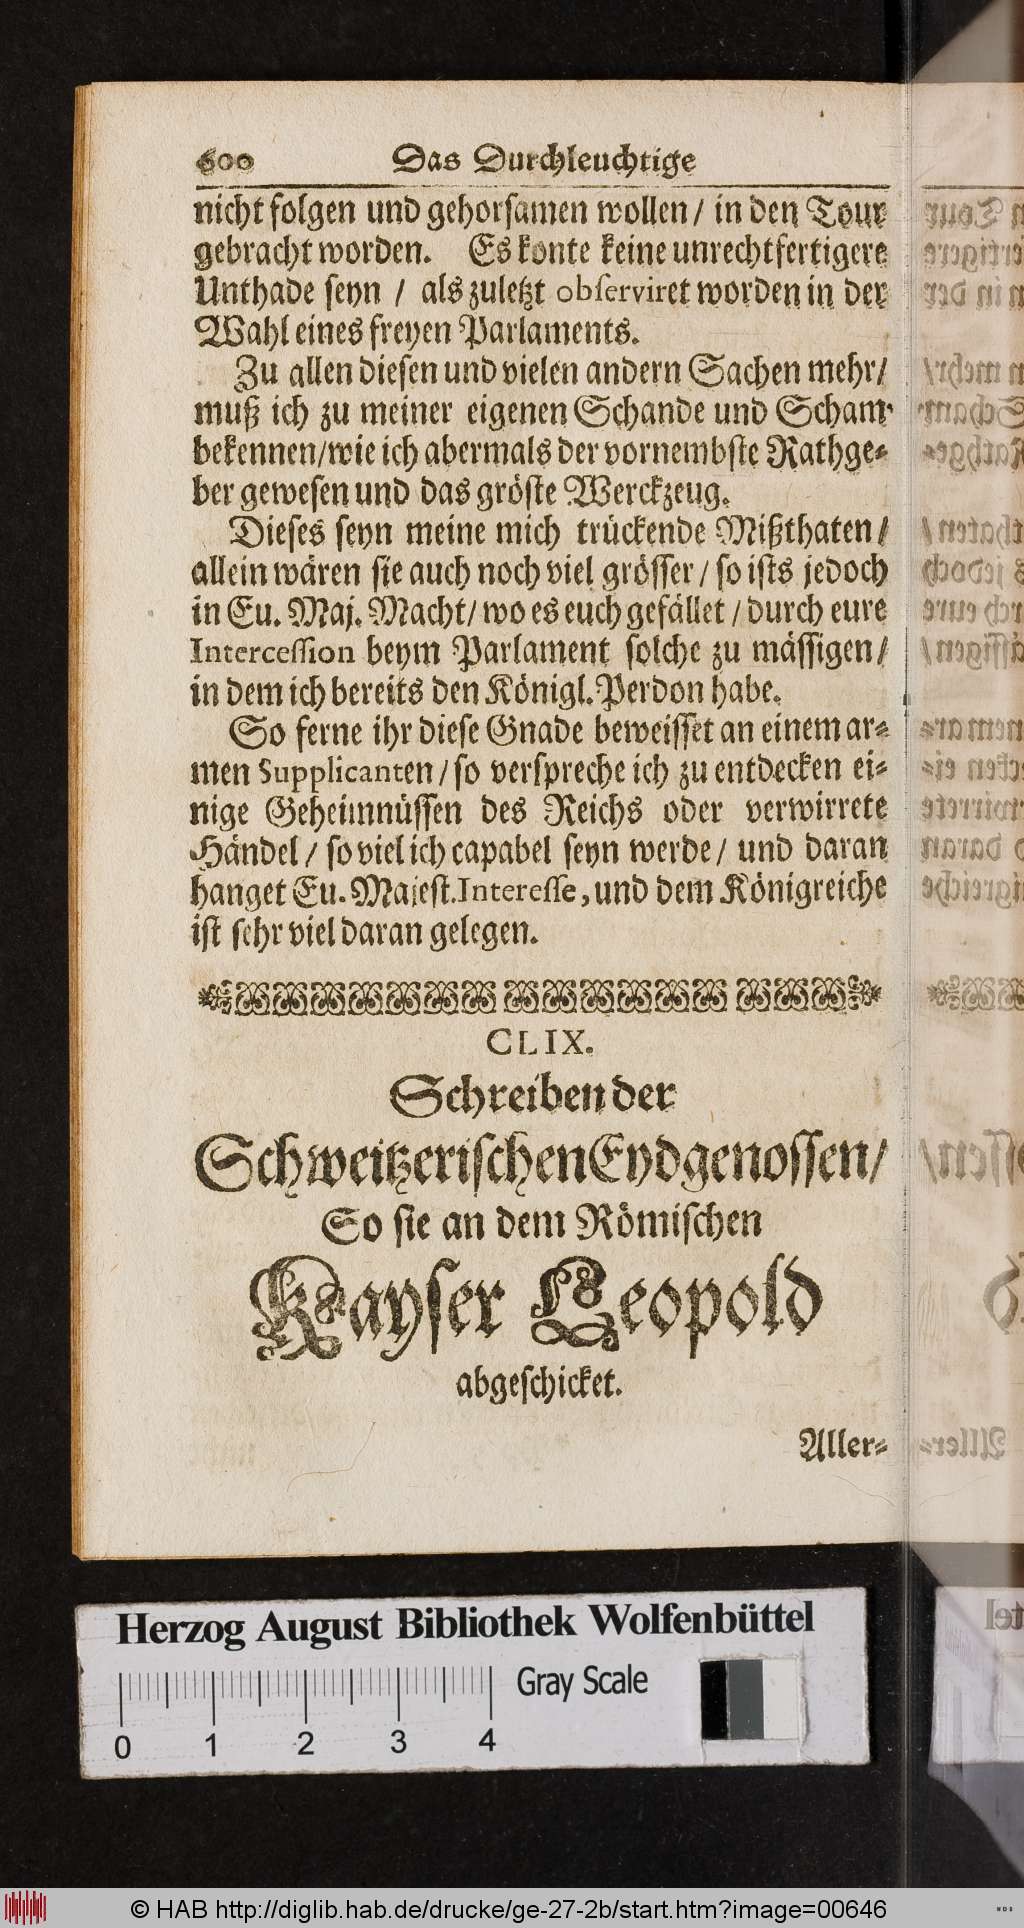 600 Das Durchleuchtige
nicht folgen und gehorsamen wollen / in den Tour
gebracht worden. Es konte keine unrechtfertigere
Unthade seyn / als zuletzt observiret worden in der
Wahl eines freyen Parlaments.
Zu allen diesen und vielen andern Sachen mehr /
muß ich zu meiner eigenen Schande und Scham
bekennen / wie ich abermals der vornembste Rathge⸗
ber gewesen und das gröste Werckzeug.
Dieses seyn meine mich trückende Mißthaten /
allein wären sie auch noch viel grösser / so ists jedoch
in Eu. Maj. Macht / wo es euch gefället / durch eure
Intercession beym Parlament solche zu mässigen /
in dem ich bereits den Königl. Perdon habe.
So ferne ihr diese Gnade beweisset an einem ar⸗
men Supplicanten / so verspreche ich zu entdecken ei⸗
nige Geheimnüssen des Reichs oder verwirrete
Händel / so viel ich capabel seyn werde / und daran
hanget Eu. Majest. Interesse, und dem Königreiche
ist sehr viel daran gelegen.
CLIX.
Schreiben der
Schweitzerischen Eydgenossen /
So sie an dem Römischen
Kayser Leopold
abgeschicket.
Aller⸗
Herzog August Bibliothek Wolfenbüttel
Gray Scale
0 1 2 3 4
© HAB http://diglib.hab.de/drucke/ge-27-2b/start.htm?image=00646